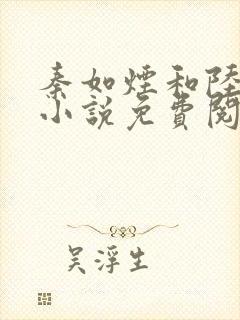 秦如煙和陸
小說免費閱
吴浮生